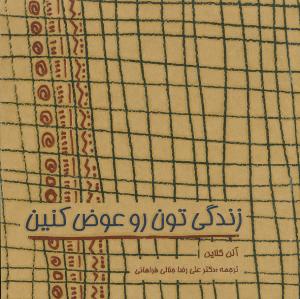 زندگی تون رو عوض کنین
آلن کلاین
ترجمه دکتر علی رضا فراهانی